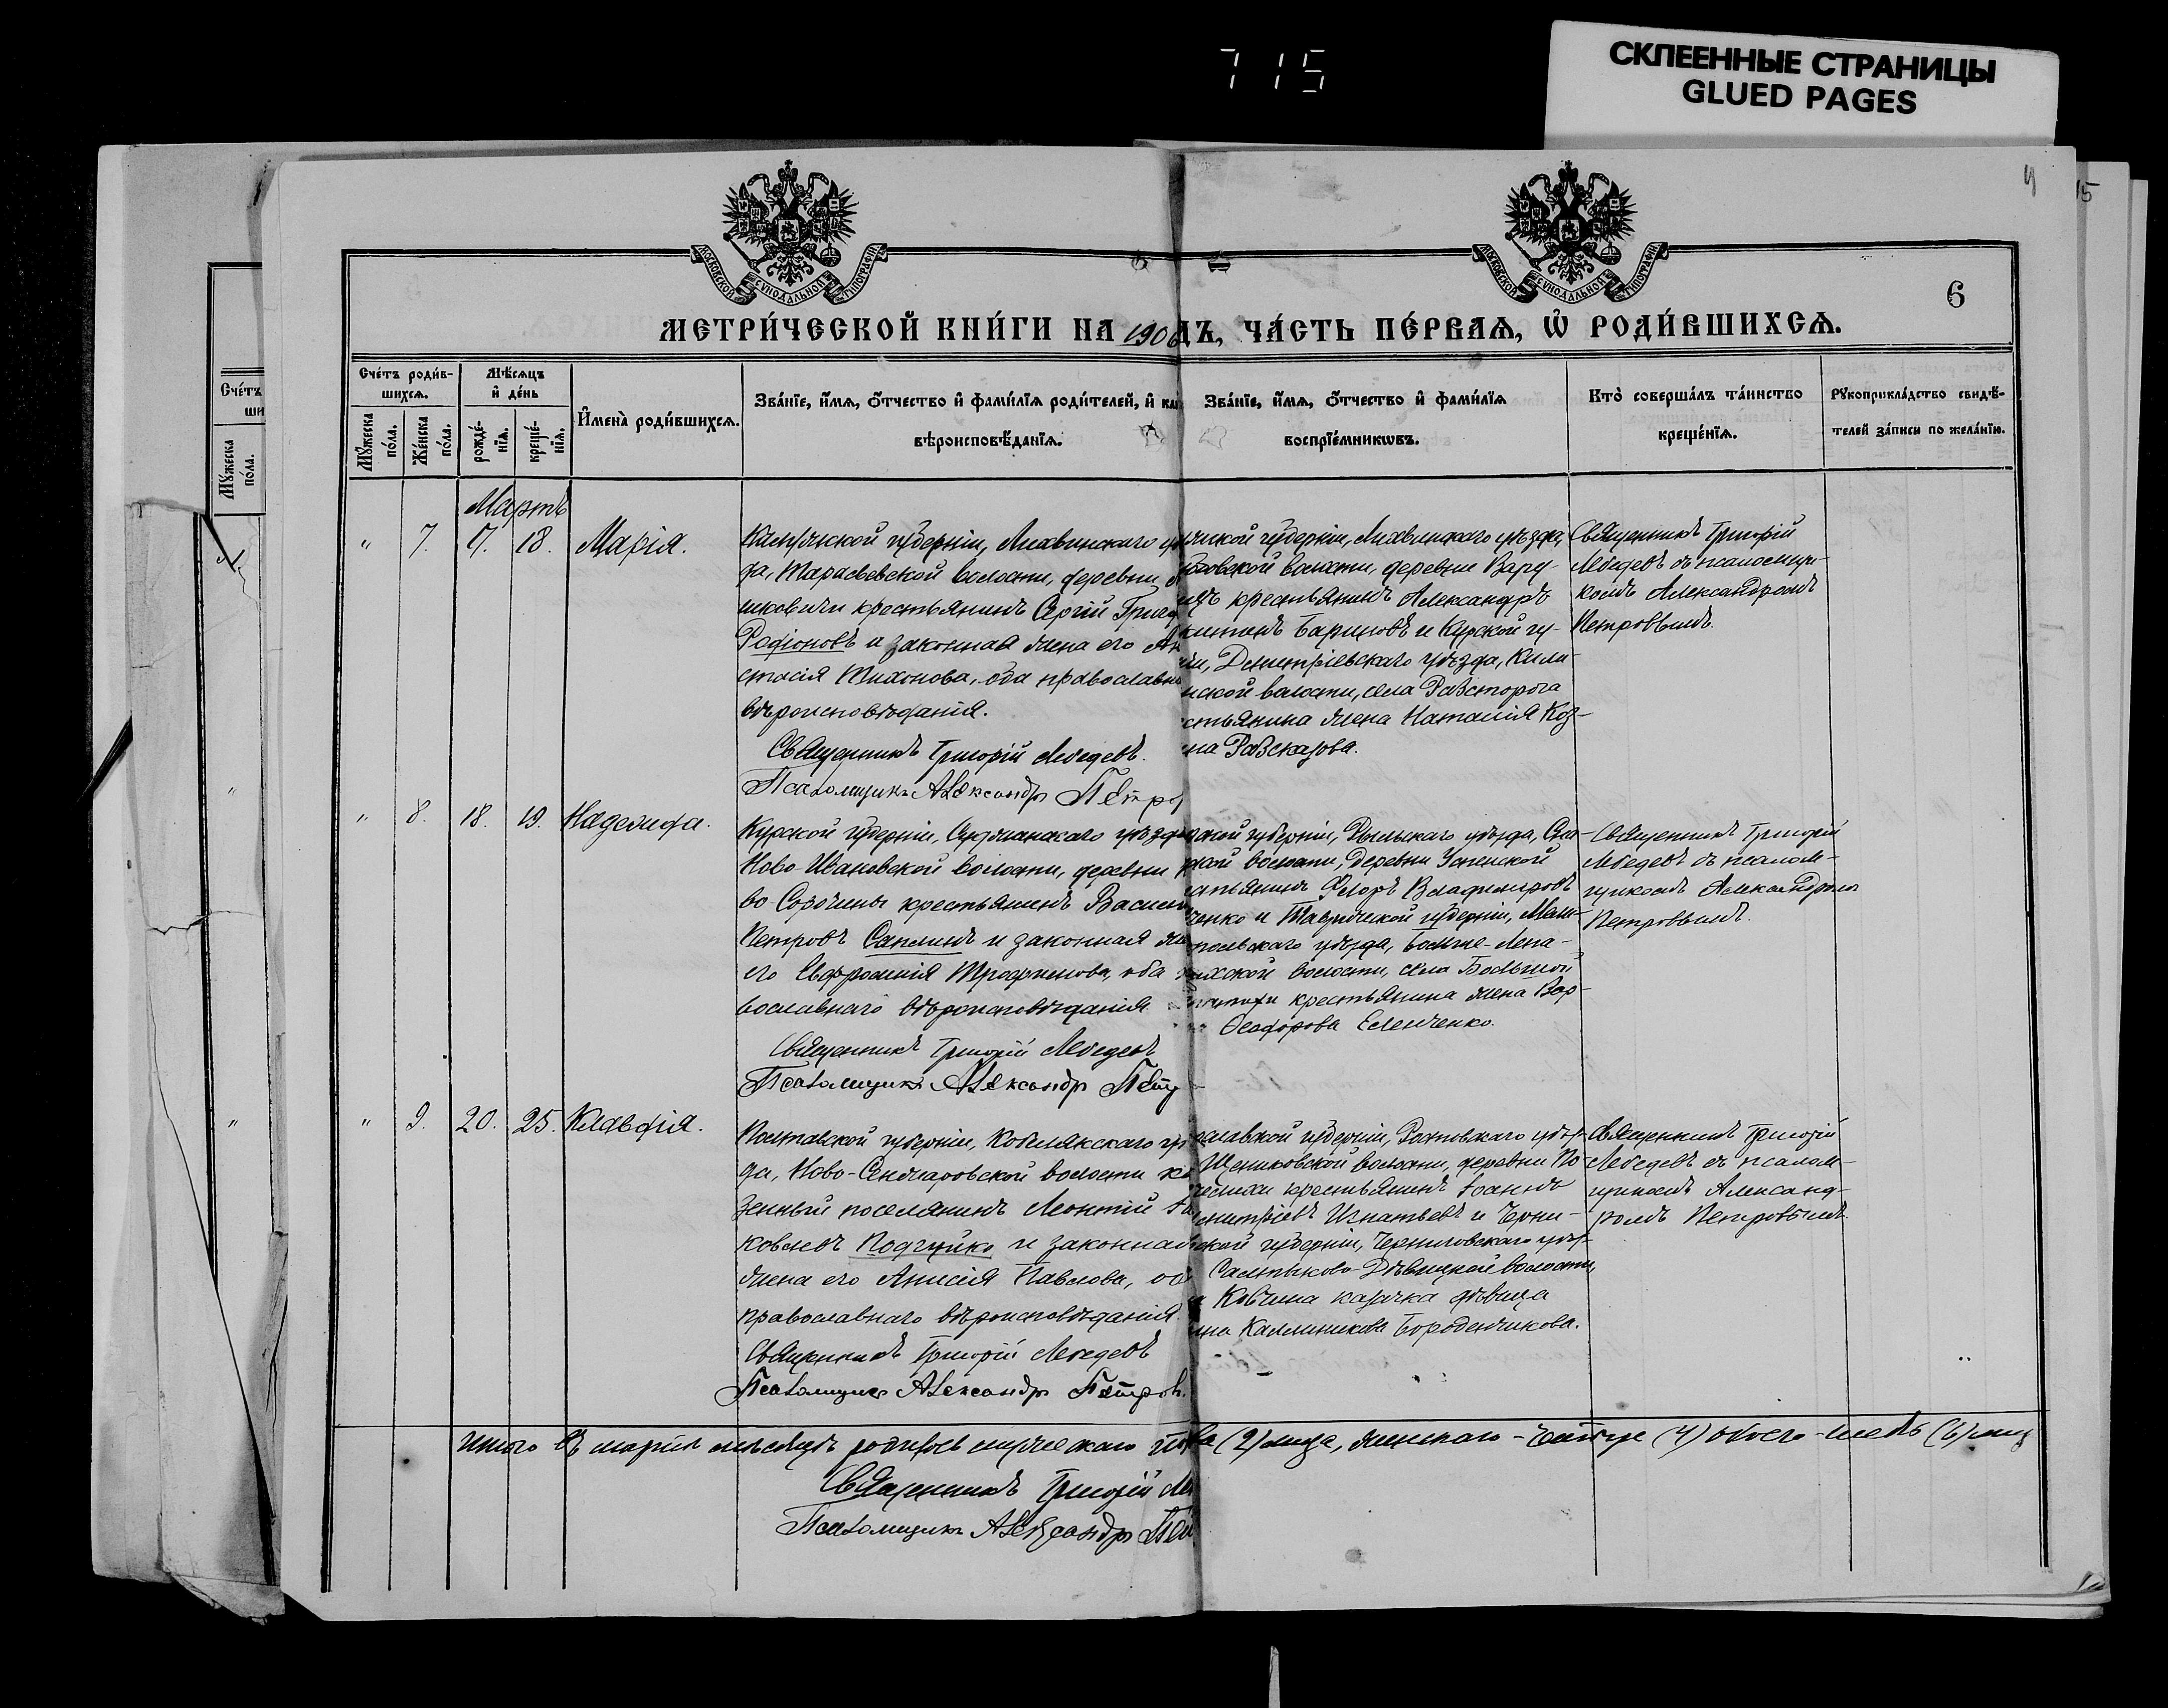 715
СКЛЕЕННЫЕ СТРАНИЦЫ
GLUED PAGES
15
6
МОСКОВСКОЙ СУНОДАЛЬНОЙ ТИПОГРАФІИ
МОСКОВСКОЙ СУНОДАЛЬНОЙ ТИПОГРАФІИ
МЕТРИ́ЧЕСКОЙ КНИ́ГИ НА 1906 ДЪ, ЧА́СТЬ ПЕ́РВАѦ, Ѽ РОДИ́ВШИХСѦ.
Сче́тъ
ши
Мꙋ́жеска по́ла.
Сче́тъ роди́в-
шихсѧ.
Мꙋ́жеска по́ла.
Же́нска по́ла.
Мѣ́сѧцъ
и҆ де́нь
рожде́-
нїѧ.
креще́-
нїѧ.
И҆мена̀ роди́вшихсѧ.
Зва́нїе, и҆́мѧ, ѻ҆́тчество и҆ фами́лїѧ роди́телей, и҆ как
вѣроисповѣ́данїѧ.
Зва́нїе, и҆́мѧ, ѻ҆́тчество и҆ фами́лїѧ
воспрїе́мникѡвъ.
Кто̀ соверша́лъ та́инство
креще́нїѧ.
Рꙋкоприкла́дство свидѣ́-
телей за́писи по жела́нїю.
Мартъ
" 7. 17. 18. Марія.
Калужской губерніи, Лихвинскаго уѣ
да, волости, деревни
крестьянинъ Сергій
Родіоновъ и законная жена его Ан
стасія Тихонова, оба православн
вѣроисповѣданія.
Священникъ Григорій Лебедевъ.
Псаломщикъ Александръ Петро
жской губерніи, Лихвинскаго уѣзда,
волости, деревни
крестьянинъ Александръ
Бариновъ и Курской гу-
іи, Дмитріевскаго уѣзда,
ской волости, села
стьянина жена Наталія Коз-
на Разсказова.
Священникъ Григорій
Лебедевъ съ псаломщи-
комъ Александромъ
Петровымъ.
" 8. 18. 19. Надежда.
Курской губерніи, уѣзда
Ново-Ивановской волости, деревни
во Сорочины крестьянинъ Васил
Петровъ Саплинъ и законная же
его Евфросинія Трофимова, оба
вославнаго вѣроисповѣданія
Священникъ Григорій Лебедевъ
Псаломщикъ Александръ Петр
ской губерніи, Рыльскаго уѣзда,
ской волости, деревни Успенской
стьянинъ Владиміровъ
ченко и Таврической губерніи, Мели-
польскаго уѣзда, Больше-Лепа-
ихской волости, села Большой
крестьянина жена Вар-
Ѳеодорова Еленченко.
Священникъ Григорій
Лебедевъ съ псалом-
щикомъ Александромъ
Петровымъ.
" 9. 20. 25. Клавдія.
Полтавской губерніи, Кобелякскаго уѣ
да, Ново-Сенжаровской волости ка
зенный поселянинъ Леонтій
ковлевъ Подгуйко и законная
жена его Анисія Павлова, об
православнаго вѣроисповѣданія
Священникъ Григорій Лебедевъ
Псаломщикъ Александръ Петровъ.
славской губерніи, Ростовскаго уѣз-
волости, деревни По-
крестьянинъ Іоаннъ
митріевъ Игнатьевъ и Черни-
ской губерніи, Черниговскаго уѣз-
Салтыково-Дѣвицкой волости,
Ковчина казачка дѣвица
на Каллиникова Бороденчикова.
Священникъ Григорій
Лебедевъ съ псалом-
щикомъ Александ-
ромъ Петровымъ.
Итого въ мартѣ мѣсяцѣ родилось мужескаго пола (2) лица, женскаго - четыре (4) обоего - шесть (6) лицъ
Священникъ Григорій Ле
Псаломщикъ Александръ Пет